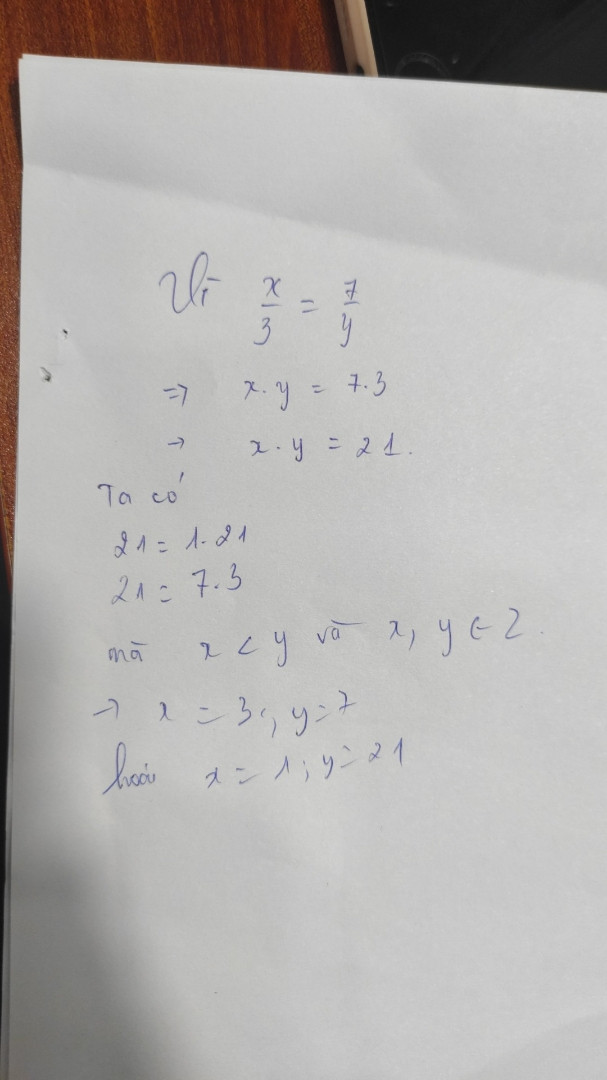 Vì x/3 = 7/y
=> x.y = 7.3
→ x.y = 21.
Ta có
21 = 1.21
21 = 7.3
mà x < y và x, y ∈ Z.
→ x = 3; y = 7
hoặc x = 1; y = 21